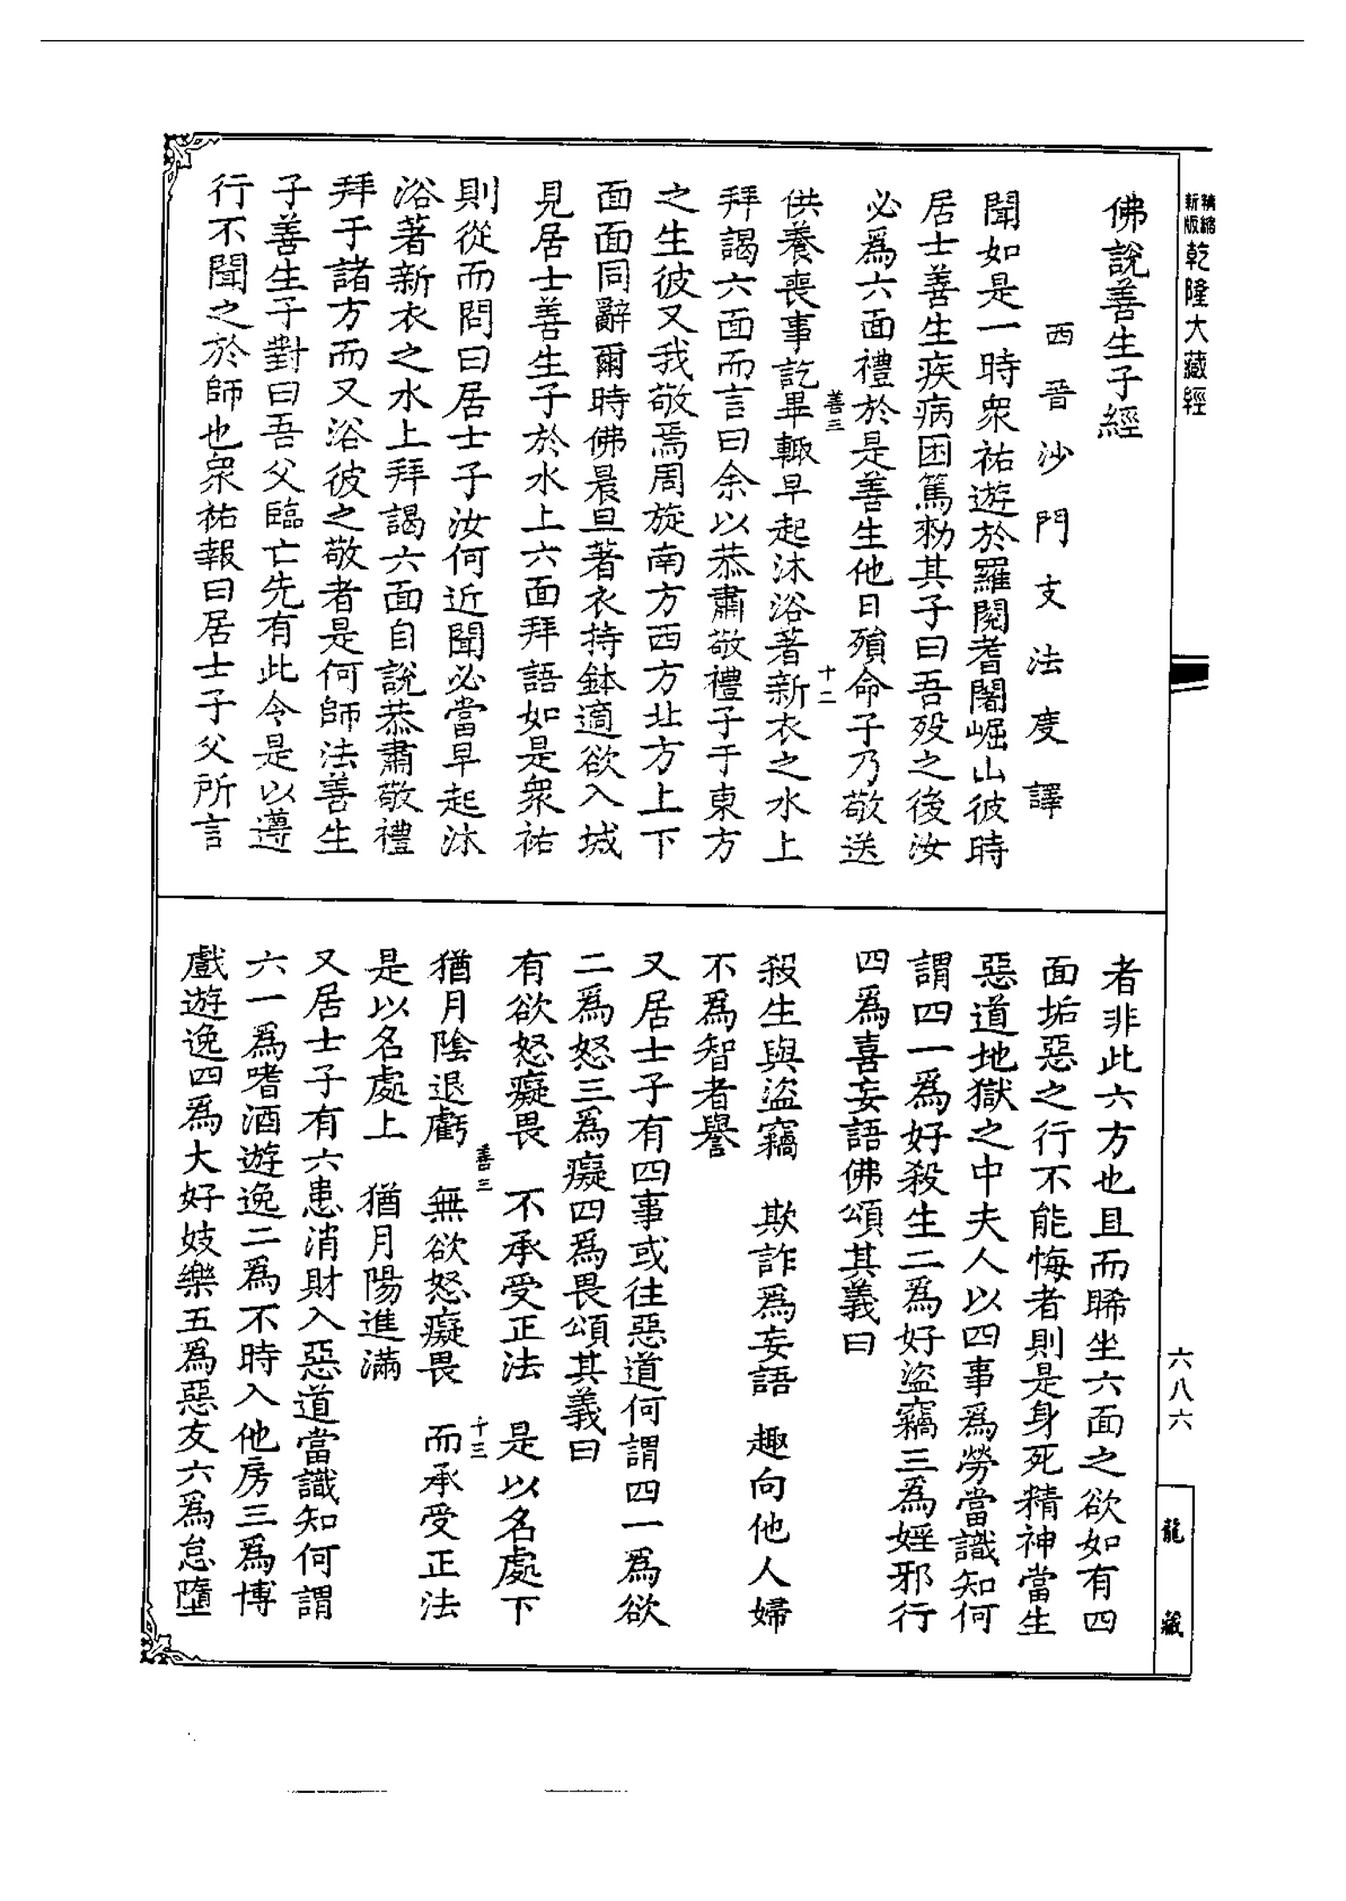 精縮新版乾隆大藏經
佛說善生子經
西晉沙門支法度譯
聞如是一時衆祐遊於羅閱耆闍崛山彼時
居士善生疾病困篤勑其子曰吾歿之後汝
必爲六面禮於是善生他日殞命子乃敬送
善三
十二
供養喪事訖畢輙早起沐浴著新衣之水上
拜謁六面而言曰余以恭肅敬禮子于東方
之生彼又我敬焉周旋南方西方北方上下
面面同辭爾時佛晨旦著衣持鉢適欲入城
見居士善生子於水上六面拜語如是衆祐
則從而問曰居士子汝何近聞必當早起沐
浴著新衣之水上拜謁六面自說恭肅敬禮
拜于諸方而又浴彼之敬者是何師法善生
子善生子對曰吾父臨亡先有此令是以遵
行不聞之於師也衆祐報曰居士子父所言
者非此六方也且而晞坐六面之欲如有四
面垢惡之行不能悔者則是身死精神當生
惡道地獄之中夫人以四事爲勞當識知何
謂四一爲好殺生二爲好盜竊三爲婬邪行
四爲喜妄語佛頌其義曰
殺生與盜竊　欺詐爲妄語　趣向他人婦
不爲智者譽
又居士子有四事或往惡道何謂四一爲欲
二爲怒三爲癡四爲畏頌其義曰
有欲怒癡畏　不承受正法　是以名處下
善三
十三
猶月陰退虧　無欲怒癡畏　而承受正法
是以名處上　猶月陽進滿
又居士子有六患消財入惡道當識知何謂
六一爲嗜酒遊逸二爲不時入他房三爲博
戲遊逸四爲大好妓樂五爲惡友六爲怠墮
六八六
龍藏